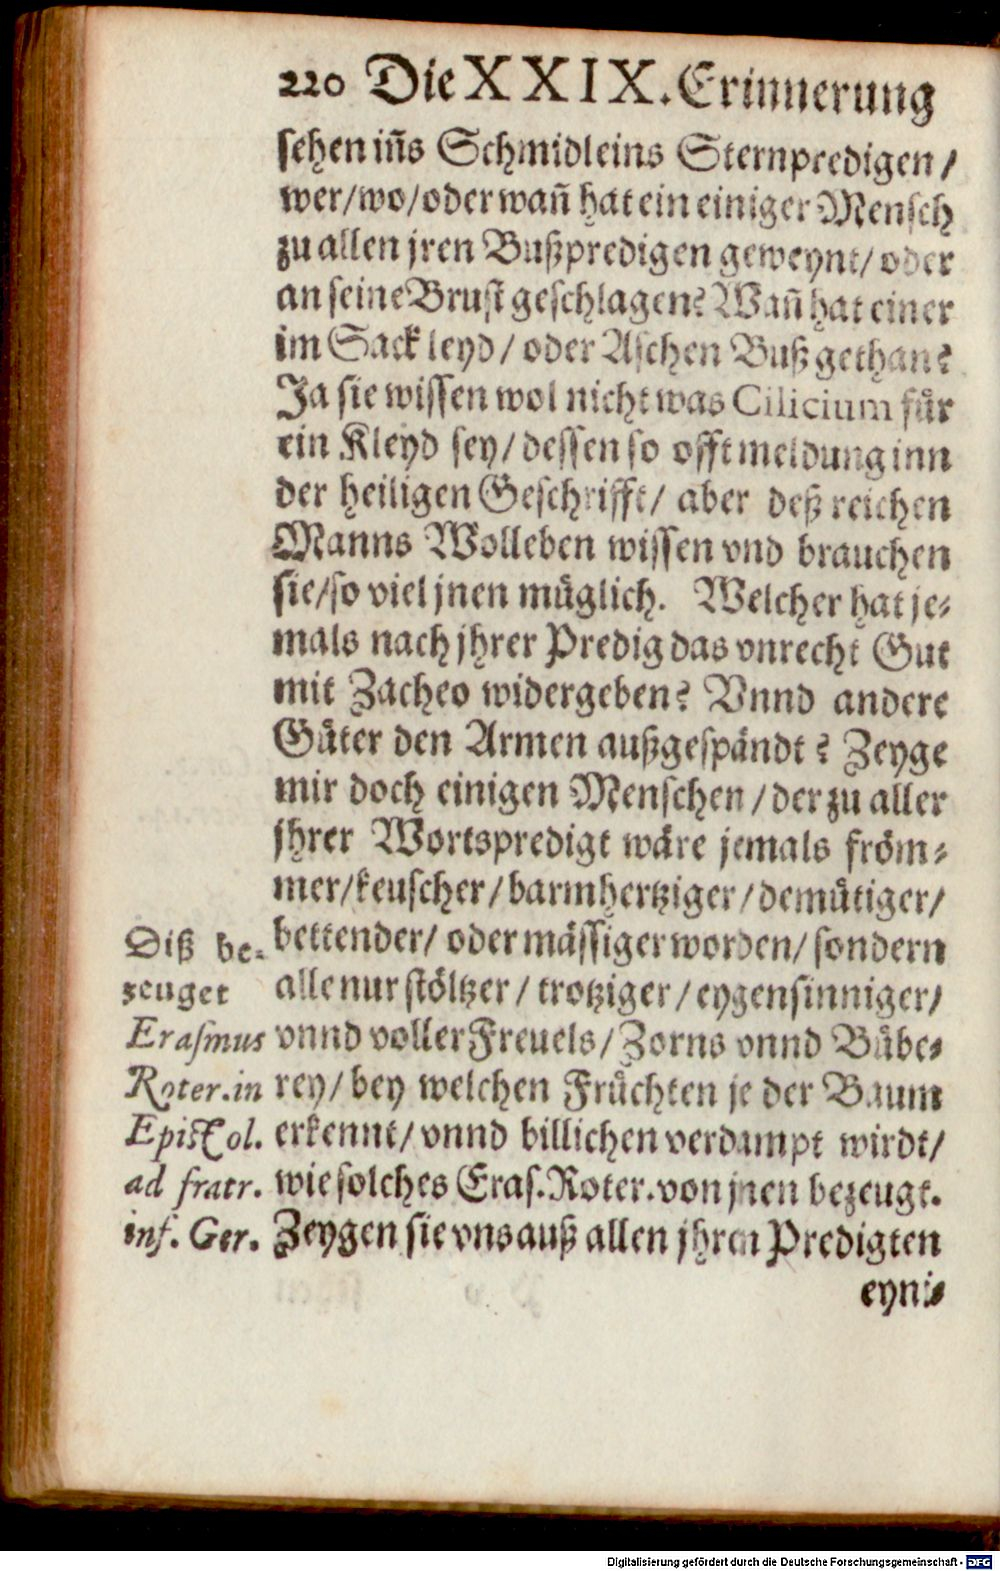 220 Die XXIX. Erinnerung
sehen iñs Schmidleins Sternpredigen /
wer/wo/oder wañ hat ein einiger Mensch
zu allen jren Bußpredigen geweynt/ oder
an seine Brust geschlagen? Wañ hat einer
im Sack leyd / oder Aschen Buß gethan?
Ja sie wissen wol nicht was Cilicium für
ein Kleyd sey/ dessen so offt meldung inn
der heiligen Geschrifft/ aber deß reichen
Manns Wolleben wissen vnd brauchen
sie/so viel jnen müglich. Welcher hat je-
mals nach jhrer Predig das vnrecht Gut
mit Zacheo widergeben? Vnnd andere
Güter den Armen außgespändt? Zeyge
mir doch einigen Menschen / der zu aller
jhrer Wortspredigt wäre jemals fröm-
mer/keuscher/barmhertziger/demütiger/
bettender/ oder mässiger worden/ sondern
alle nur stöltzer / trotziger / eygensinniger/
vnnd voller Freuels/ Zorns vnnd Bübe-
rey/ bey welchen Früchten je der Baum
erkennt/ vnnd billichen verdampt wirdt/
wie solches Eras. Roter. von jnen bezeugt.
Zeygen sie vns auß allen jhren Predigten
eyni-
Diß be-
zeuget
Erasmus
Roter. in
Epistol.
ad fratr.
inf. Ger.
Digitalisierung gefördert durch die Deutsche Forschungsgemeinschaft - DFG